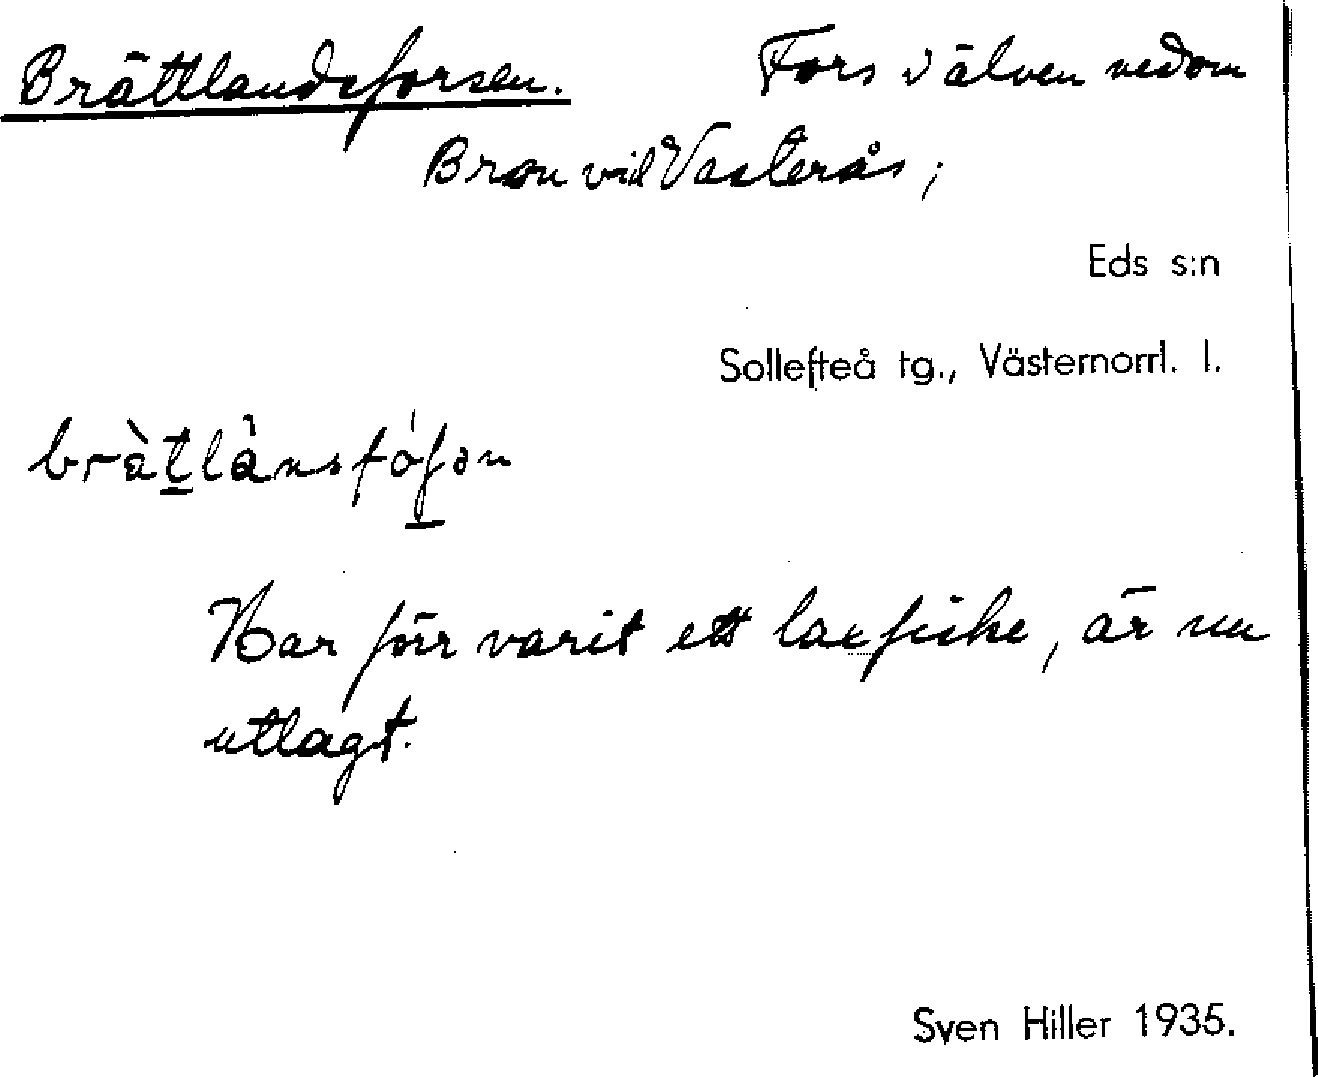 Brättlandsforsen. Fors i älven nedom
Bron vid Västerås;
Eds s:n
Sollefteå tg., Västernorrl. l.
brὰtlànsfóʃən
Har förr varit ett laxfiske, är nu
utlagt.
Sven Hiller 1935.